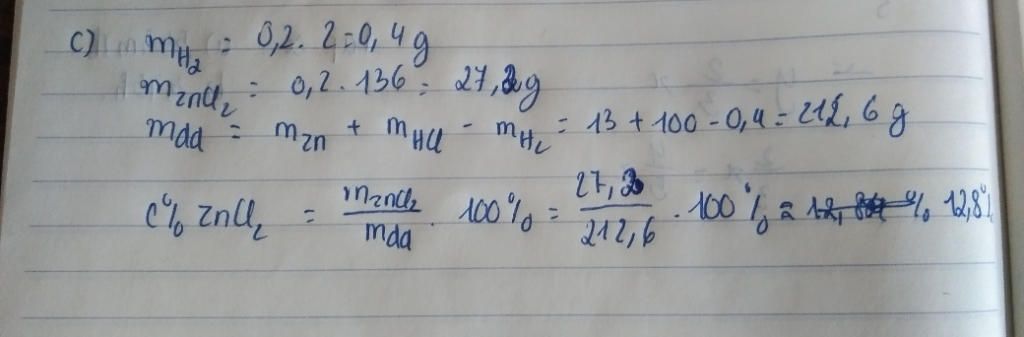 c) mH2 = 0,2 . 2 = 0,4 g
mZnCl2 = 0,2 . 136 = 27,2 g
mdd = mZn + mHCl - mH2 = 13 + 100 - 0,4 = 212,6 g
C% ZnCl2 = mZnCl2 / mdd . 100% = 27,2 / 212,6 . 100% = 12,8%